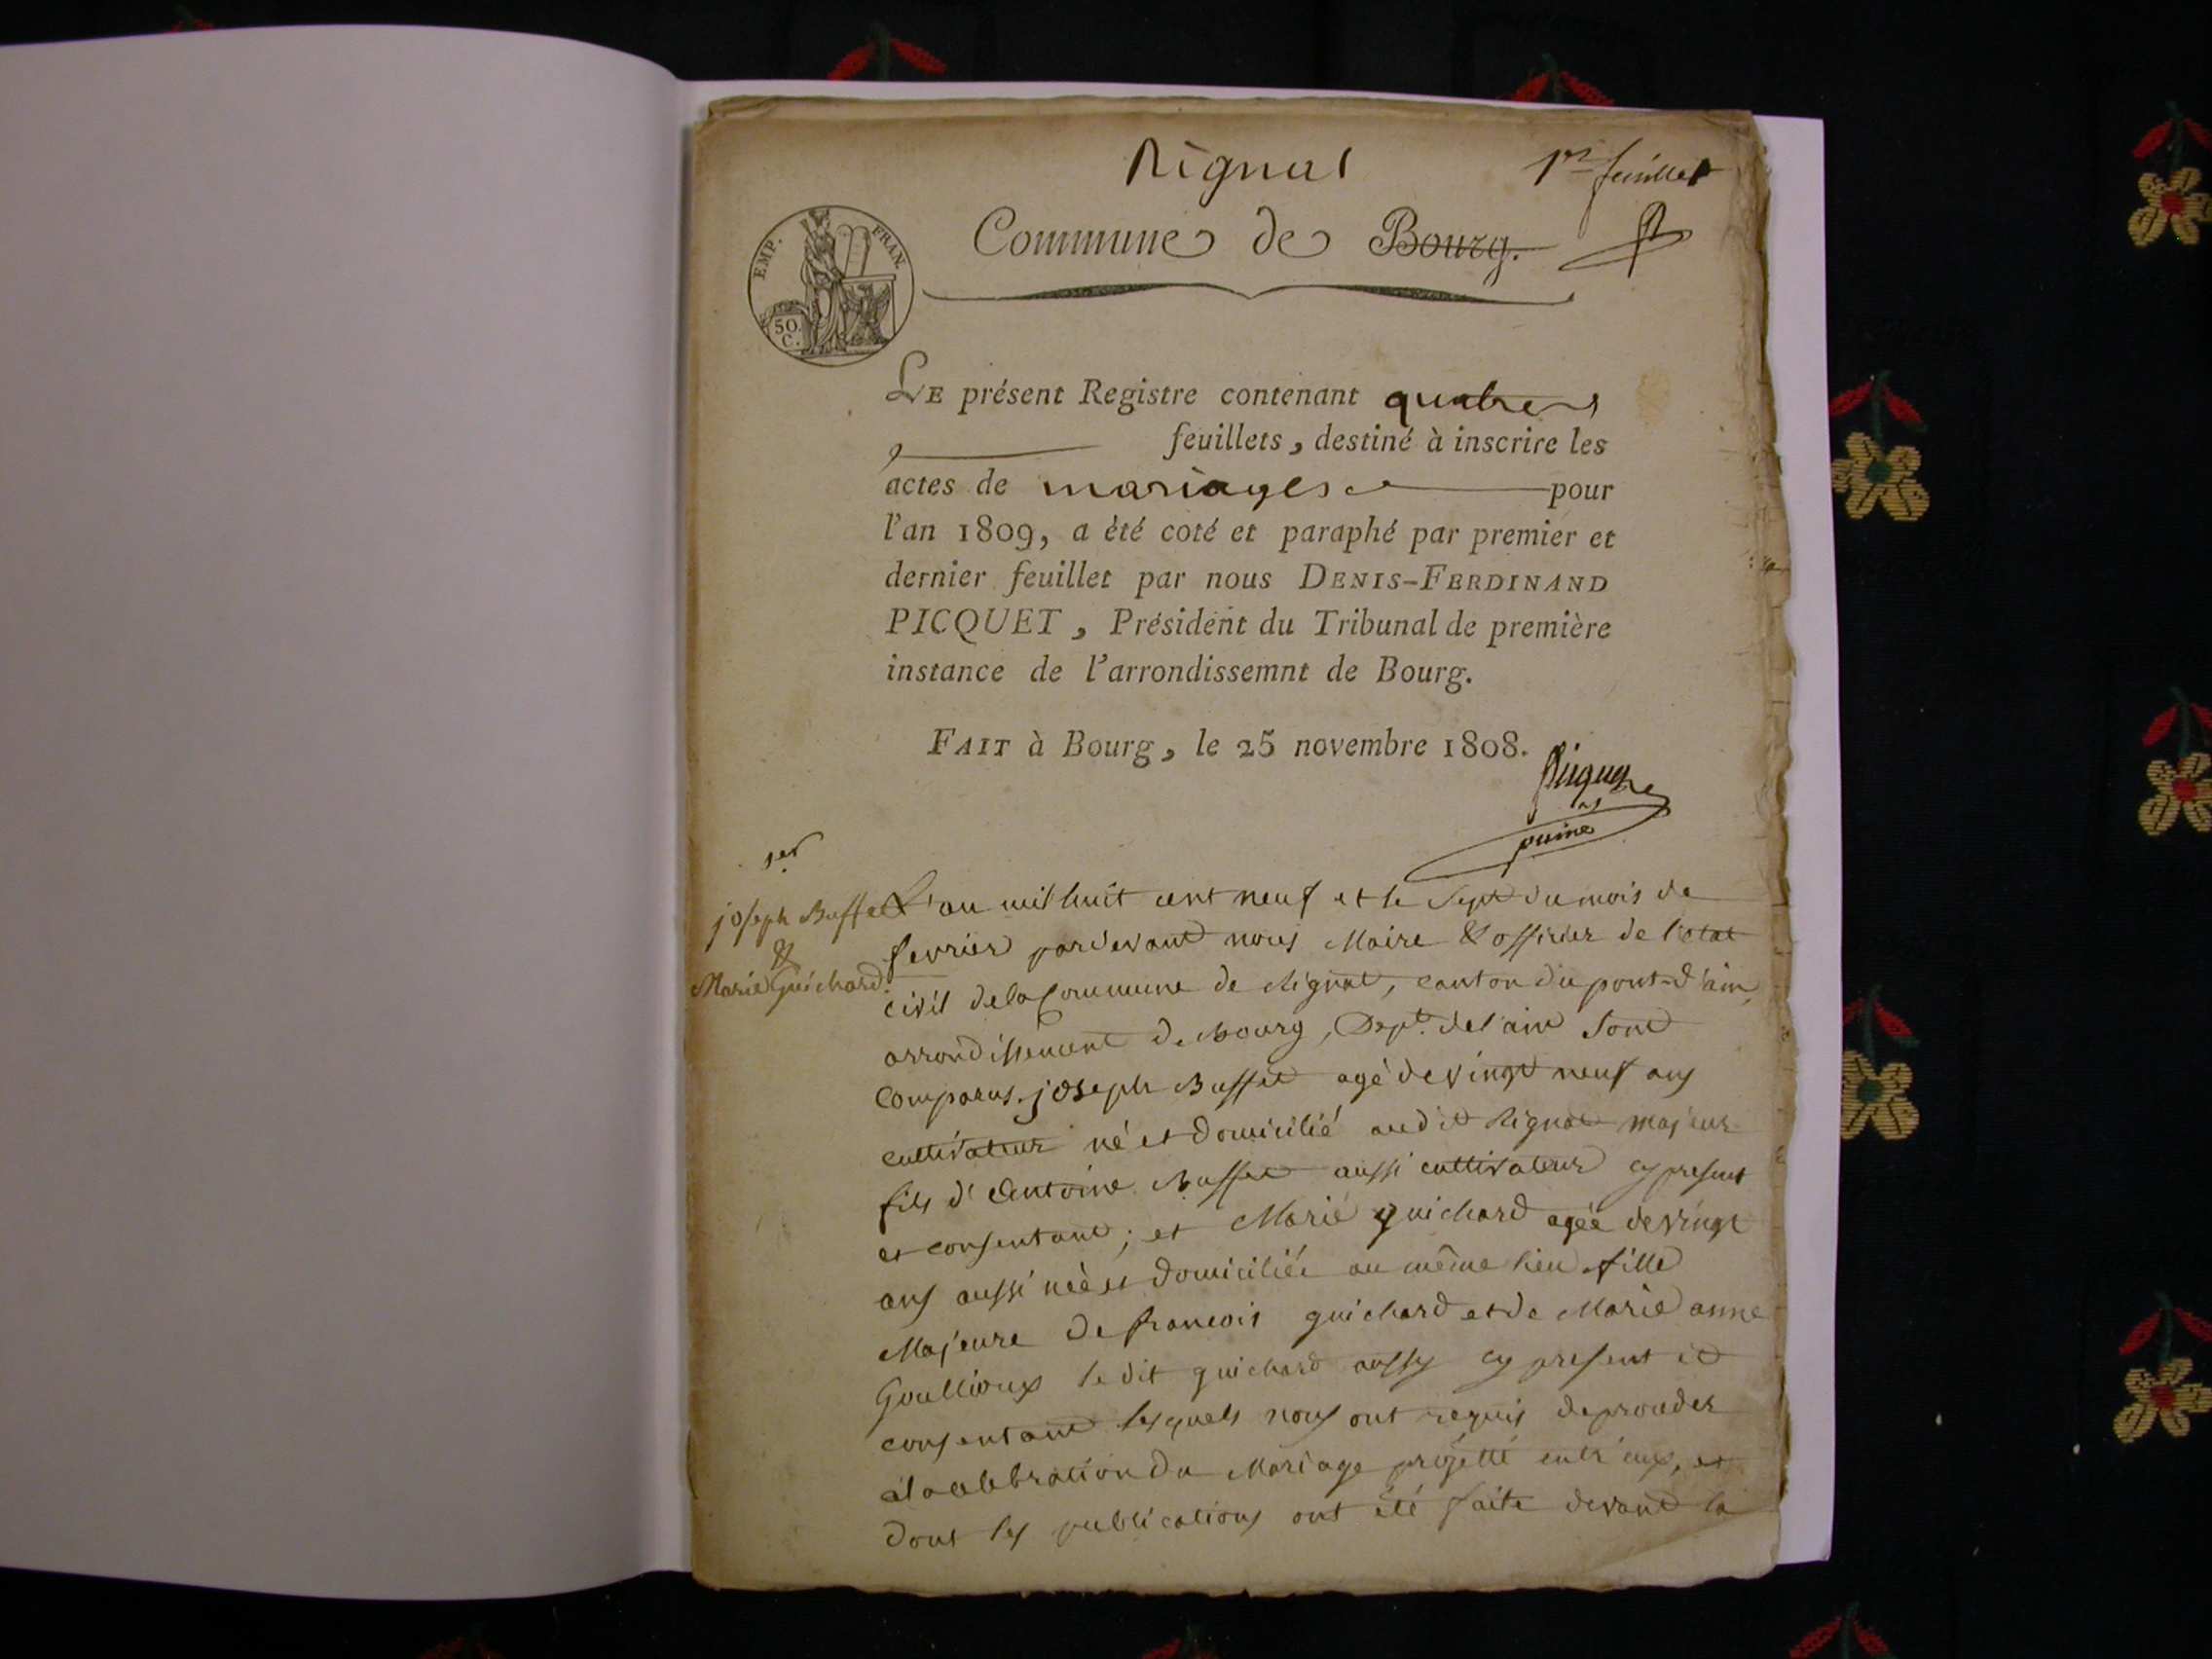 Rignat 1er feuillet
Commune de Bourg.
EMP. FRAN.
50.
C.
LE présent Registre contenant quatre
feuillets, destiné à inscrire les
actes de mariages pour
l'an 1809, a été coté et paraphé par premier et
dernier feuillet par nous DENIS-FERDINAND
PICQUET, Président du Tribunal de première
instance de l'arrondissemnt de Bourg.
FAIT à Bourg, le 25 novembre 1808.
Picquet
1er
joseph Buffet
&
Marie Guichard.
L'an mil huit cent neuf et le Sept du mois de
fevrier pardevant nous Maire & officier de l'etat
civil de la Commune de Rignat, canton du pont-d'ain,
arrondissement de Bourg, Dept. de l'ain Sont
Comparus joseph Buffet agé de vingt neuf ans
cultivateur né et domicilié audit Rignat majeur
fils d'Antoine Buffet aussi cultivateur cy present
et consentant; et Marie guichard agée de vingt
ans aussi née et domiciliée au même lieu fille
Majeure de francois guichard et de Marie anne
Goullioux le dit guichard aussy cy present et
consentant lesquels nous ont requis de proceder
a la celebration du Mariage projetté entr'eux, et
dont les publications ont été faite devant la